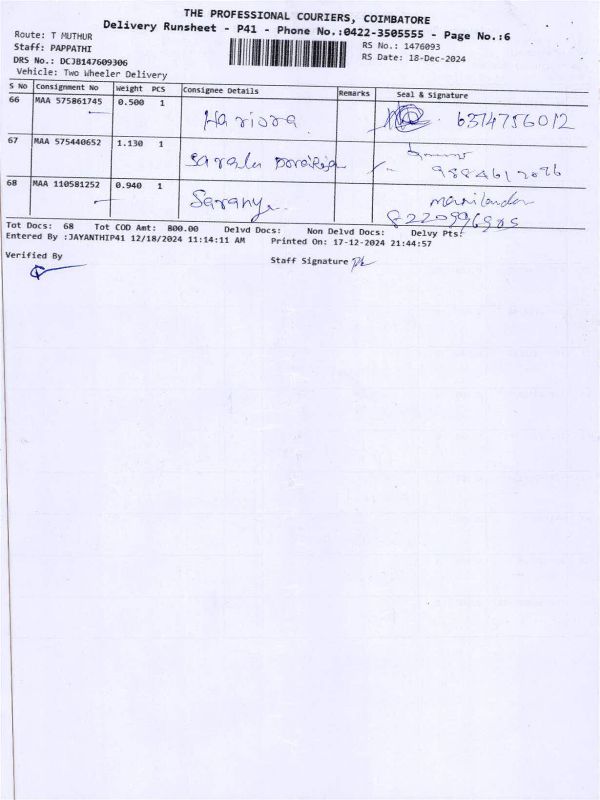 THE PROFESSIONAL COURIERS, COIMBATORE
Delivery Runsheet - P41 - Phone No.:0422-3505555 - Page No.:6
Route: T MUTHUR
RS No.: 1476093
Staff: PAPPATHI
RS Date: 18-Dec-2024
DRS No.: DCJB147609306
Vehicle: Two Wheeler Delivery
S No Consignment No Weight PCS Consignee Details Remarks Seal & Signature
66 MAA 575861745 0.500 1
6374756012
67 MAA 575440652 1.130 1 Sarala
68 MAA 110581252 0.940 1 Saranya
Tot Docs: 68 Tot COD Amt: 800.00 Delvd Docs: Non Delvd Docs: Delvy Pts:
Entered By :JAYANTHIP41 12/18/2024 11:14:11 AM Printed On: 17-12-2024 21:44:57
Verified By
Staff Signature